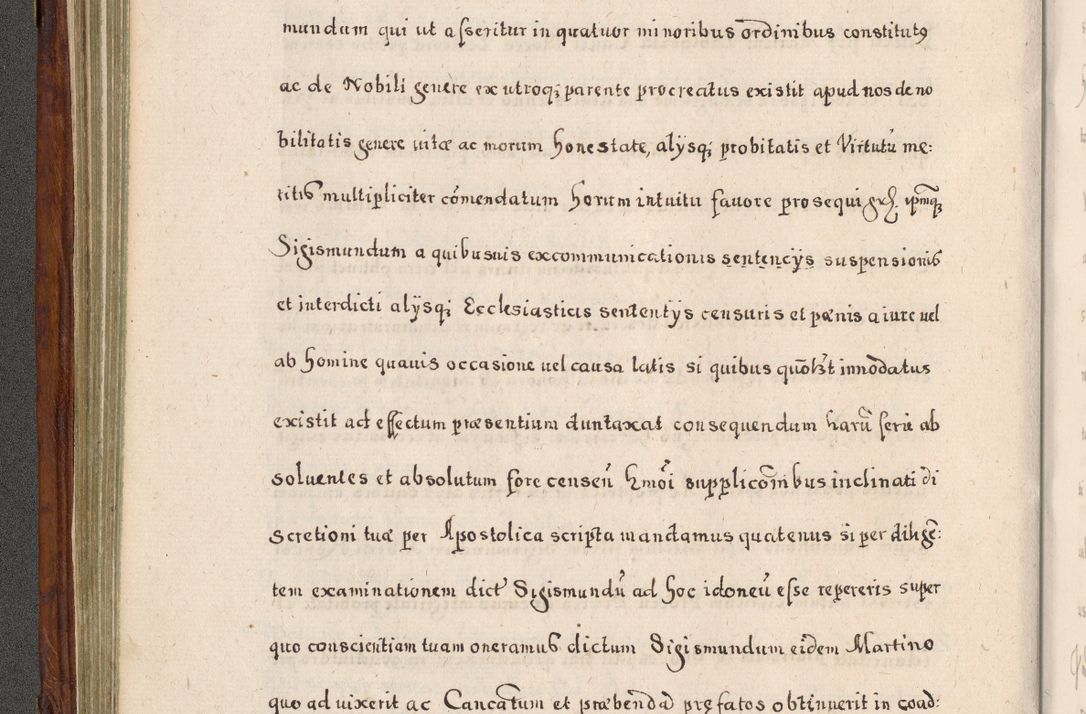 mundum qui ut asseritur in quatuor minoribus ordinibus constitutꝰ
ac de Nobili genere ex utroqꝫ parente procreatus existit apud nos de no
bilitatis genere uitæ ac morum honestate, alijsqꝫ probitatis et Virtutū me:
ritis multipliciter cōmendatum horum intuitu fauore prosequi ipmqꝫ
Sigismundum a quibusuis excommunicationis sentencijs suspensionis
et interdicti alijsqꝫ Ecclesiasticis sententijs censuris et pœnis a iure uel
ab homine quauis occasione uel causa latis si quibus innodatus
existit ad effectum præsentium duntaxat consequendum harū serie ab
soluentes et absolutum fore censeñ hmōi supplicōnibus inclinati di
scretioni tuæ per Apostolica scripta mandamus quatenus si per diligē:
tem examinationem dict Sigismundū ad hoc idoneū esse repereris super
quo conscientiam tuam oneramus dictum Sigismundum eidem Martino
quo ad uixerit ac Cancatum et præbendā pręfatos obtinuerit in coad: